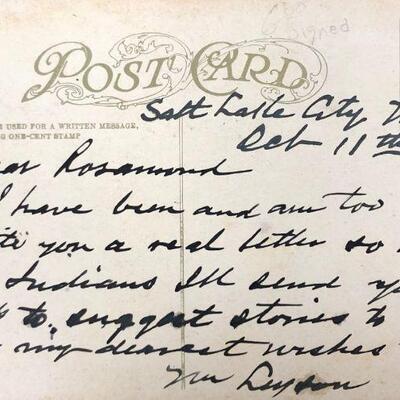 Signed
POST CARD
USED FOR A WRITTEN MESSAGE,
G ONE-CENT STAMP
Salt Lake City,
Oct 11th
ear Rosamond
I have been and am too
te you a real letter so
Indians Ill send y
to suggest stories to
my dearest wishes